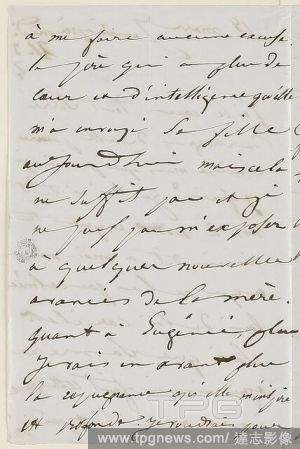 à me faire aucune excuse.
le père qui a plus de
cœur et d'intelligence qu'elle
m'a envoyé sa fille
aujourd'hui mais cela
ne suffit pas et je
ne puis pas m'exposer
à quelques nouvelles
avanies de la mère.
quant à Eugénie, plus
je vais en avant plus
la répugnance qu'elle m'inspire
est profonde. je voudrais pour
TPG IMAGES
www.tpgnews.com/達志影像